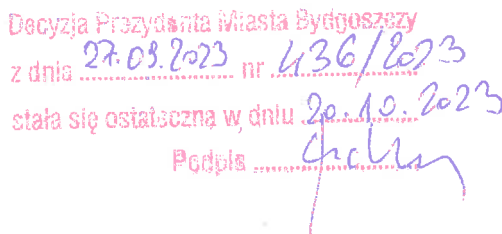 Decyzja Prezydenta Miasta Bydgoszczy
z dnia 27.09.2023 nr 436/2023
stała się ostateczną w dniu 20.10.2023
Podpis